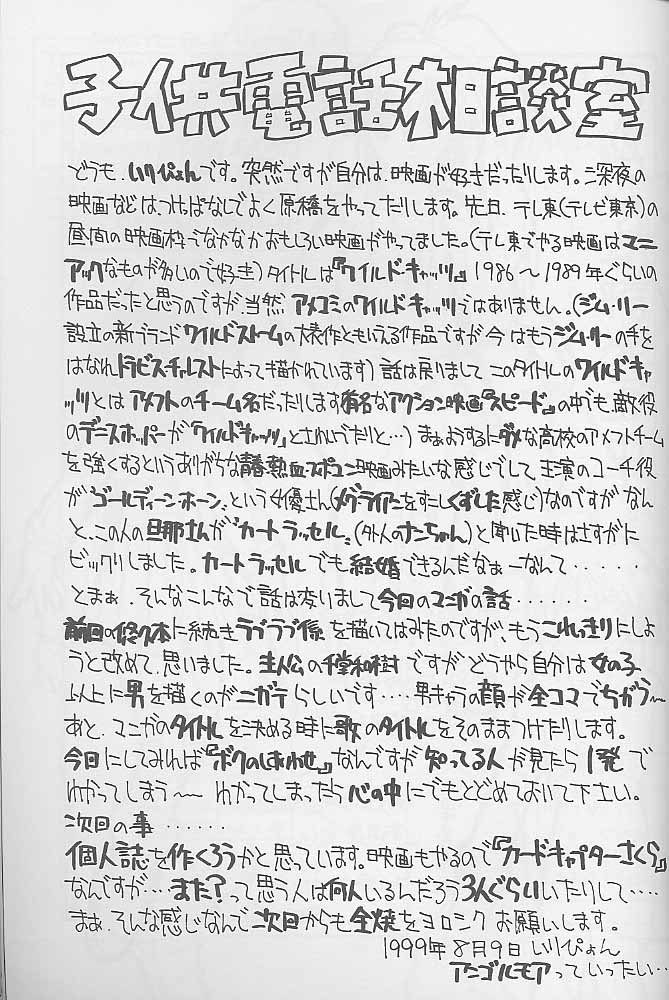 子供電話相談室
どうも、いりぴょんです。突然ですが自分は、映画が好きだったりします。深夜の
映画などは、つけっぱなしでよく原稿をやってたりします。先日、テレ東(テレビ東京)の
昼間の映画枠でなかなかおもしろい映画がやってました。(テレ東でやる映画はマニ
アックなものが多いので好き)タイトルは『ワイルド・キャッツ』1986〜1989年ぐらいの
作品だったと思うのですが、当然アメコミのワイルド・キャッツではありません。(ジム・リー
設立の新ブランドワイルドストームの代表作ともいえる作品ですが今はもうジム・リーの手を
はなれトラビス・チャレストによって描かれています)話は戻りまして このタイトルのワイルドキャ
ッツとはアメフトのチーム名だったりします有名なアクション映画『スピード』の中でも、敵役
のデニスホッパーが「ワイルドキャッツ」とさけんでたりと…)まぁようするにダメな高校のアメフトチーム
を強くするというありがちな青春・熱血・スポコン映画みたいな感じでして、主演のコーチ役
が"ゴールディーンホーン"という女優さん(メグ・ライアンをすこしくずした感じ)なのですがなん
と、この人の旦那さんが"カートラッセル"(外人のナンちゃん)と聞いた時はさすがに
ビックリしました。カートラッセルでも結婚できるんだなぁーなんて・・・・・
とまぁ、そんなこんなで話は変りまして今回のマンガの話・・・・・・・
前回の悠久本に続きラブラブ系を描いてはみたのですが、もうこれっきりにしよ
うと改めて、思いました。主人公の千堂和樹ですがどうやら自分は女の子
以上に男を描くのがニガテらしいです・・・・男キャラの顔が全コマでちがう〜
あと、マンガのタイトルを決める時に歌のタイトルをそのままつけたりします。
今回にしてみれば『ボクのしあわせ』なんですが知ってる人が見たら1発で
わかってしまう〜 わかってしまったら心の中にでもとどめておいて下さい。
次回の事・・・・・・
個人誌を作くろうかと思っています。映画もやるので『カードキャプターさくら』
なんですが…また?って思う人は何人いるんだろう3人ぐらいいたりして・・・・
まぁ、そんな感じなんで次回からも全焼をヨロシクお願いします。
1999年8月9日 いりぴょん
アンゴルモアっていったい…